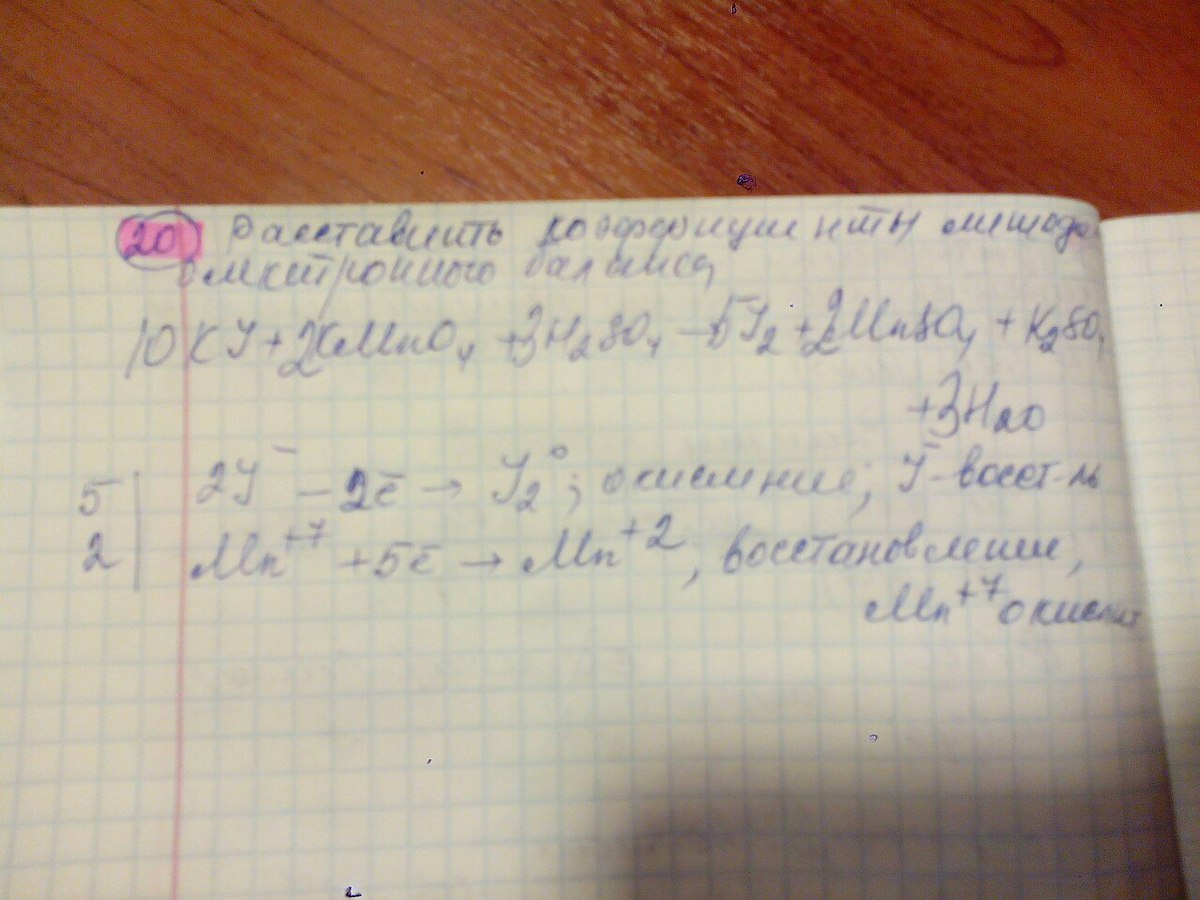 20 Расставить коэффициенты методом
электронного баланса
10KJ + 2KMnO4 + 3H2SO4 → 5J2 + 2MnSO4 + K2SO4
+ 3H2O
5 | 2J⁻ – 2ē → J2⁰; окисление; J⁻ - восст-ль
2 | Mn⁺⁷ + 5ē → Mn⁺², восстановление,
Mn⁺⁷ окислит